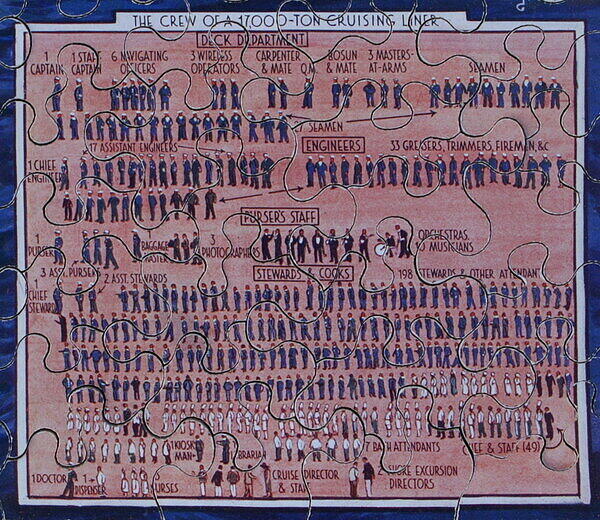 THE CREW OF A 17,000-TON CRUISING LINER
DECK DEPARTMENT
1 CAPTAIN
1 STAFF CAPTAIN
6 NAVIGATING OFFICERS
3 WIRELESS OPERATORS
CARPENTER & MATE
Q.M.
BOSUN & MATE
3 MASTERS-AT-ARMS
SEAMEN
SEAMEN
17 ASSISTANT ENGINEERS
ENGINEERS
33 GREASERS, TRIMMERS, FIREMEN, &C
1 CHIEF ENGINEER
PURSER'S STAFF
1 PURSER
BAGGAGE MASTER
3 PHOTOGRAPHERS
ORCHESTRAS,
MUSICIANS
3 ASST. PURSERS
2 ASST. STEWARDS
STEWARDS & COOKS
198 STEWARDS & OTHER ATTENDANT
1 CHIEF STEWARD
1 KIOSK MAN
LIBRARIAN
7 BATH ATTENDANTS
& STAFF (49)
1 DOCTOR
1 DISPENSER
NURSES
CRUISE DIRECTOR & STAFF
2 SHORE EXCURSION DIRECTORS